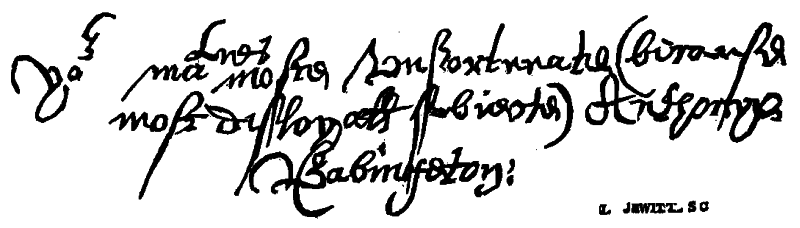 Yor matnes moste unfortunate (because
most disloyall subiecte) Anthonye
Babington.
L. JEWITT. SC